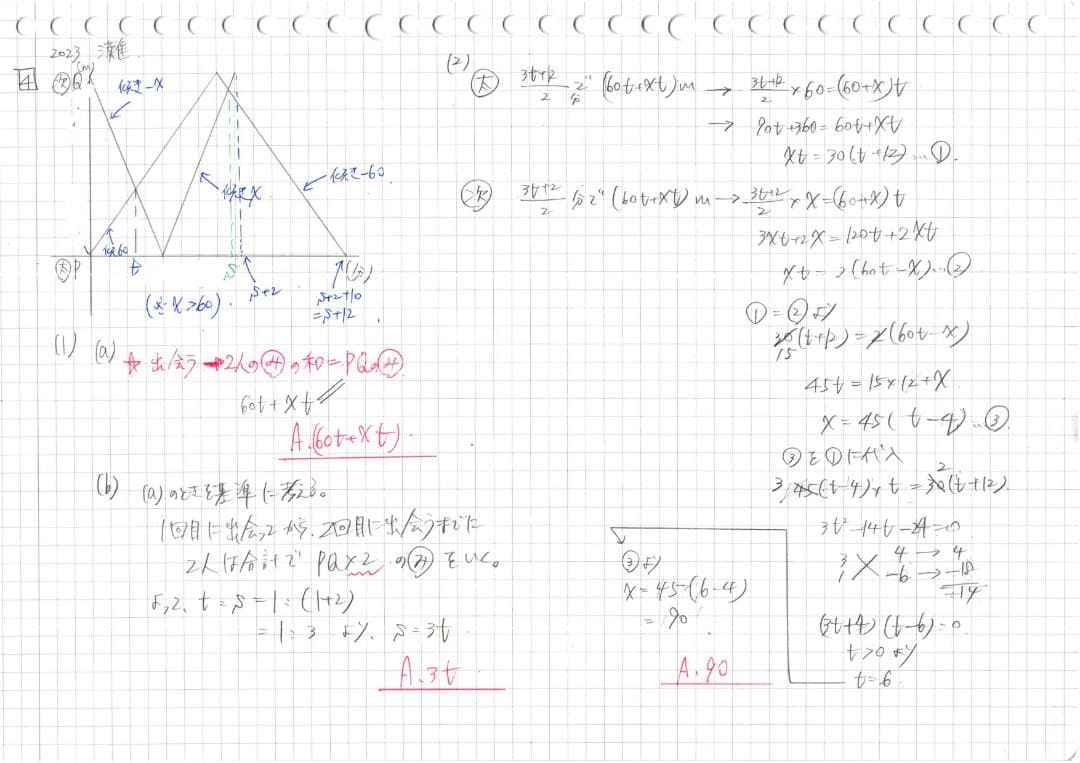 2023 灘
4
(m)
次Q
傾き-x
傾き60
傾きx
傾き-60
太P
t
s
s+2
s+2+10
=s+12
(分)
(※ x>60)
(1) (a) ☆ 出会う→2人のみの和=PQのみ
60t+xt
A.(60t+xt)
(b) (a)のときを基準に考える。
1回目に出会ってから、2回目に出会うまでに
2人は合計で PQ×2 のみをいく。
よって、t:s=1:(1+2)
=1:3 より、s=3t
A.3t
(2)
太 3t+12/2 分で(60t+xt)m → 3t+12/2×60=(60+x)t
→ 90t+360=60t+xt
xt=30(t+12)…①
次 3t+2/2 分で(60t+xt)m→3t+2/2×x=(60+x)t
3xt+2x=120t+2xt
xt=2(60t-x)…②
①=②より
30(t+12)=2(60t-x)
15
45t=15×12+x
x=45(t-4)…③
③を①に代入
3 45(t-4)×t=30(t+12)
2
3t²-14t-24=0
3 4→4
1 -6→-18
-14
(3t+4)(t-6)=0
t>0より
t=6
③より
x=45(6-4)
=90
A.90